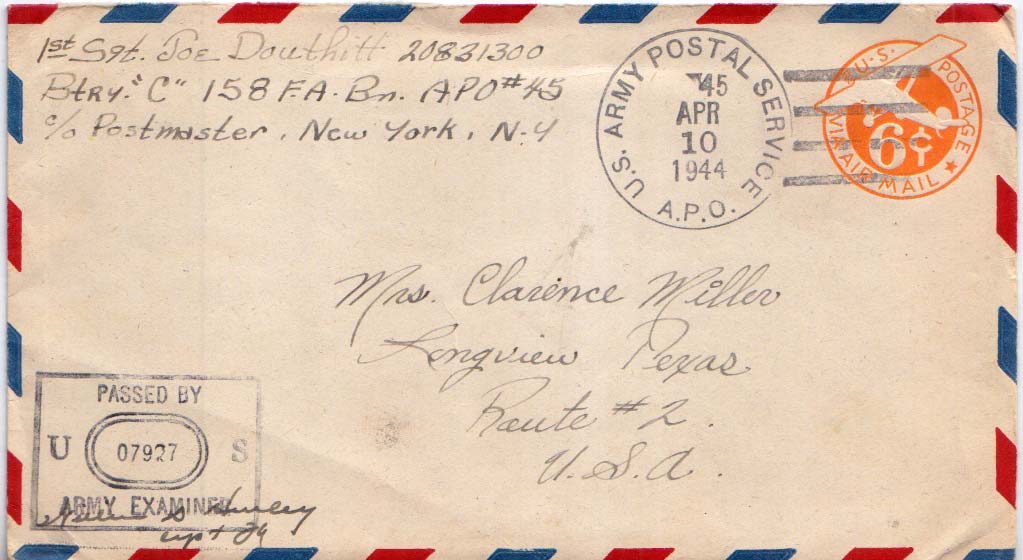 1st Sgt. Joe Douthitt 20831300
Btry. "C" 158 F.A. Bn. APO #45
c/o Postmaster, New York, N-Y
U.S. ARMY POSTAL SERVICE
'45
APR
10
1944
A.P.O.
U.S. POSTAGE
6¢
VIA AIR MAIL
Mrs. Clarence Miller
Longview Texas
Route #2.
U.S.A.
PASSED BY
U 07927 S
ARMY EXAMINER